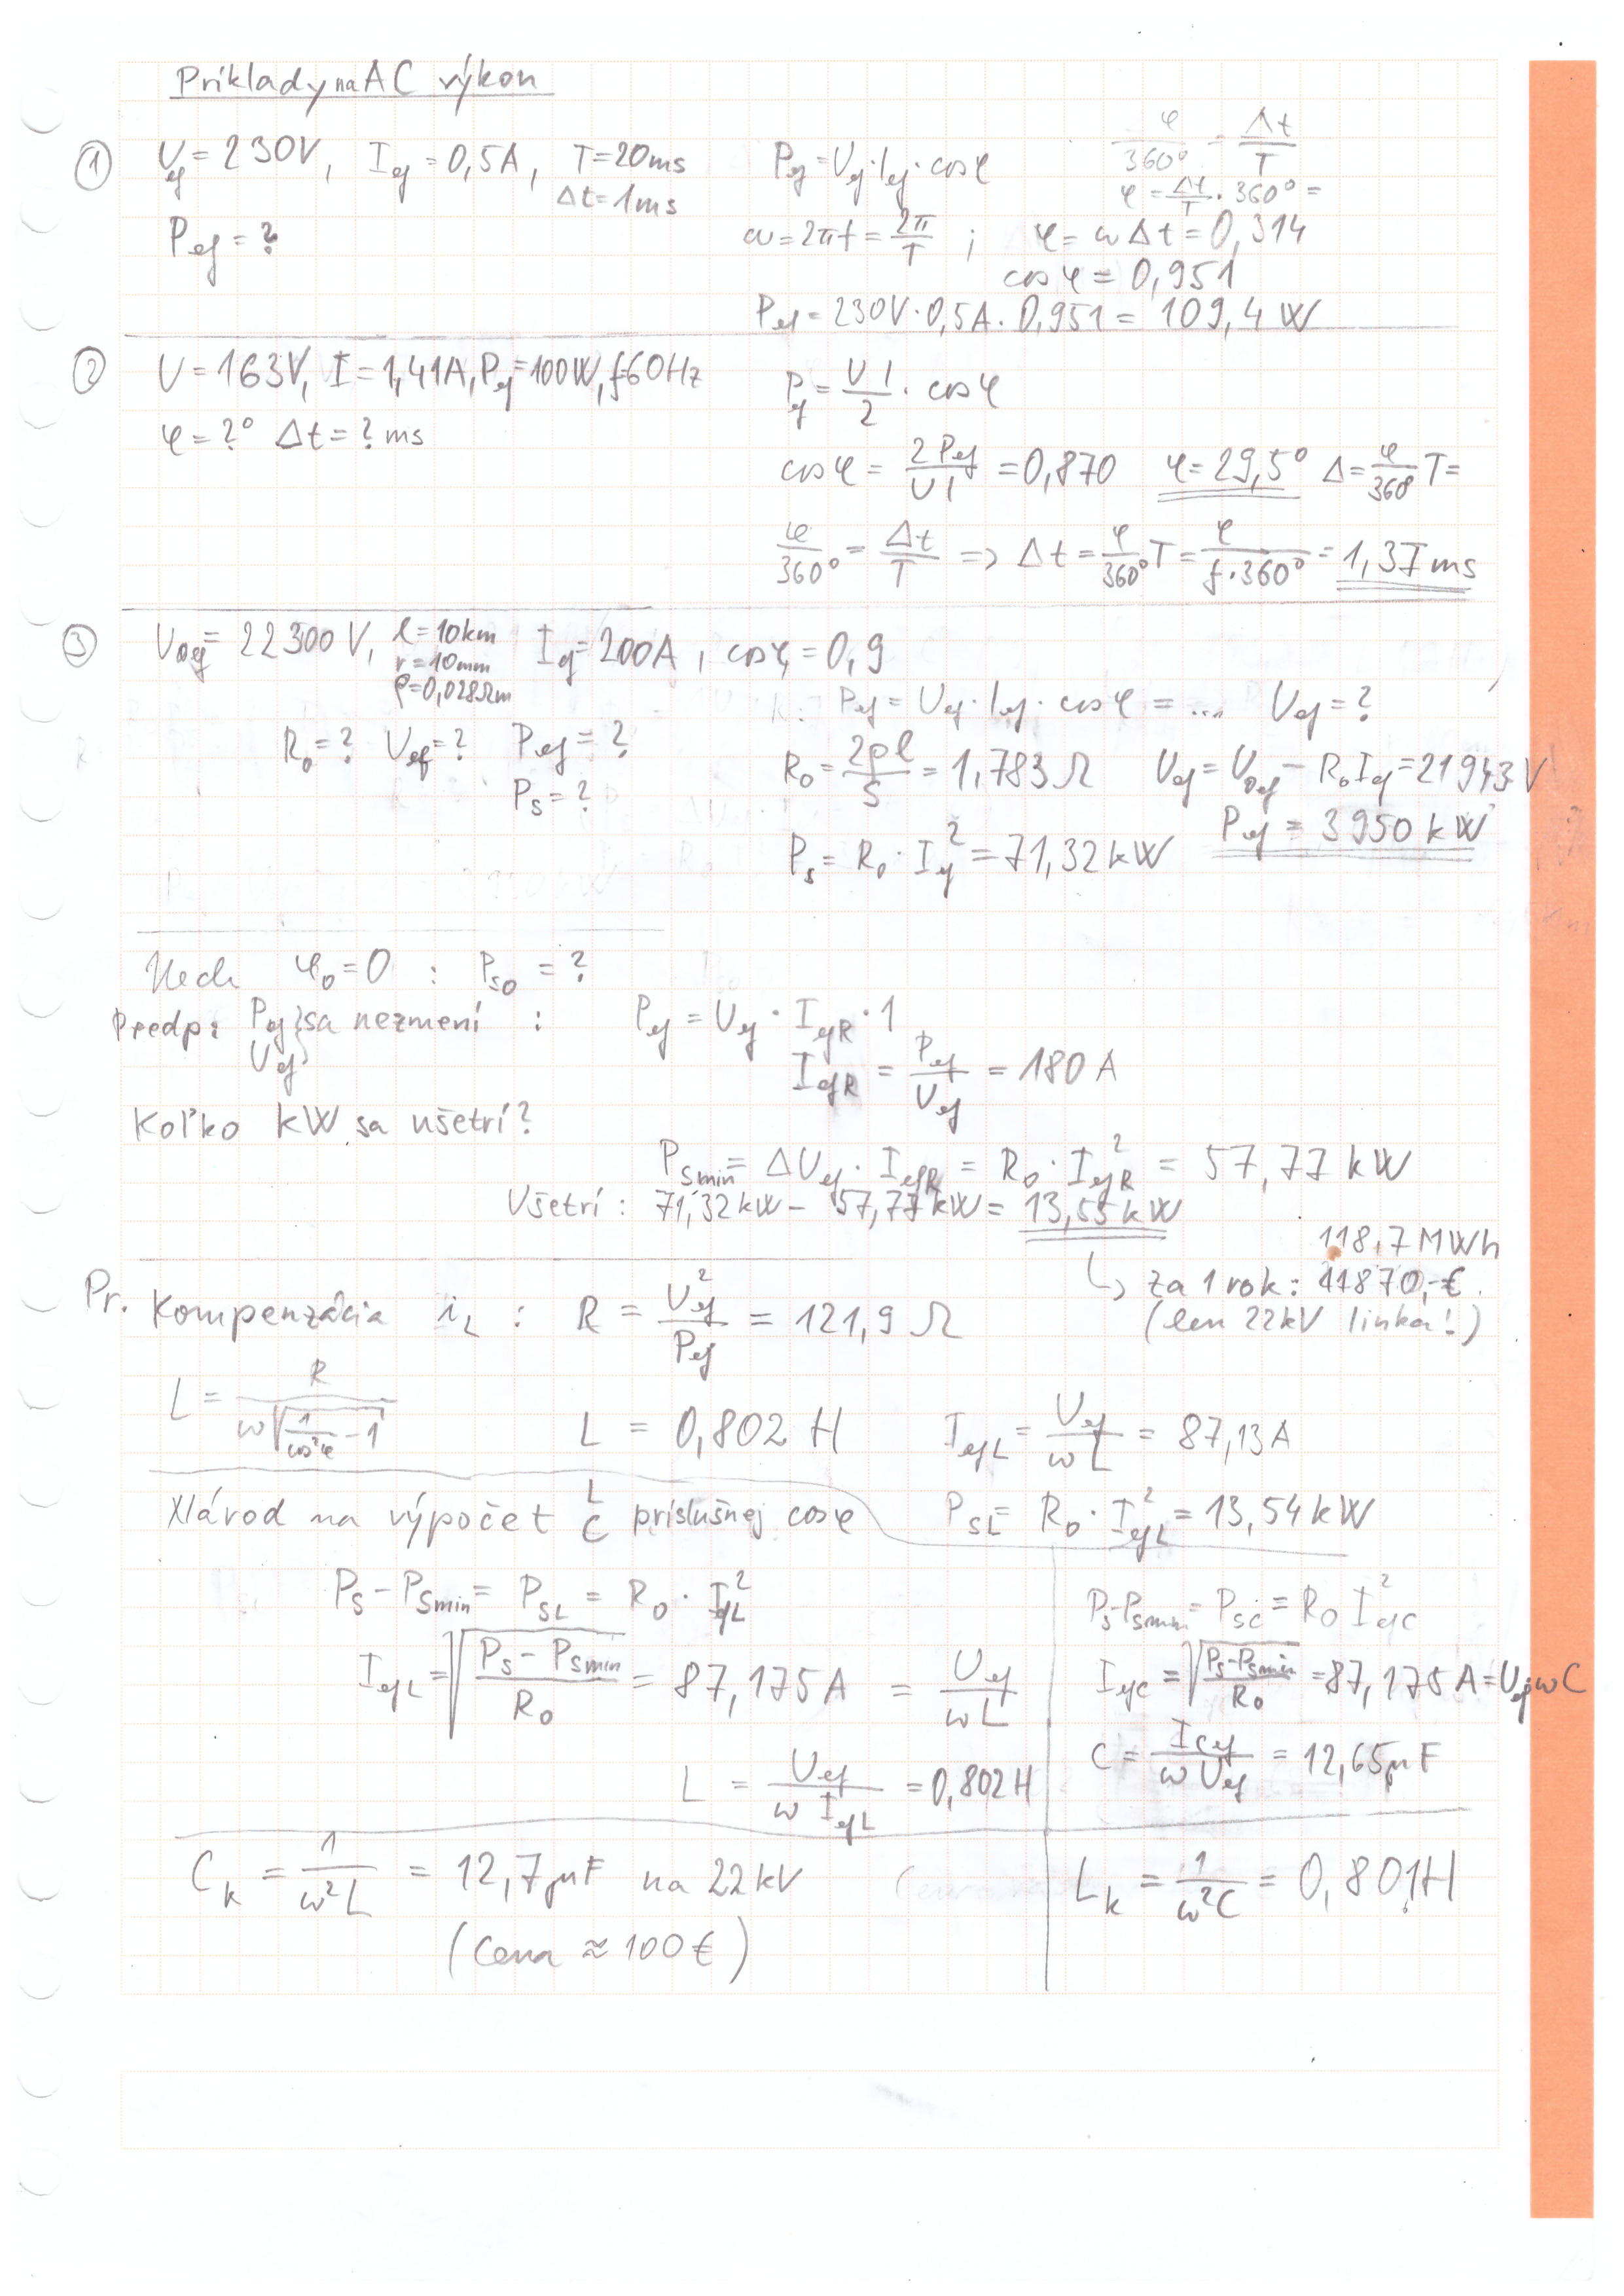 Príklady na AC výkon
① U_ef = 230V, I_ef = 0,5A, T = 20ms
Δt = 1ms
P_ef = ?
P_ef = U_ef · I_ef · cosφ
φ/360° = Δt/T
φ = Δt/T · 360° =
ω = 2πf = 2π/T ; φ = ωΔt = 0,314
cosφ = 0,951
P_ef = 230V · 0,5A · 0,951 = 109,4 W
② U = 163V, I = 1,41A, P_ef = 100W, f=60Hz
φ = ?° Δt = ? ms
P_ef = U I/2 · cosφ
cosφ = 2P_ef/U I = 0,870 φ = 29,5° Δ = φ/360 T =
φ/360° = Δt/T => Δt = φ/360° T = φ/f·360° = 1,37 ms
③ U_0ef = 22300 V, l = 10km I_ef = 200A, cosφ = 0,9
r = 10mm
ρ = 0,028Ωm
P_ef = U_ef · I_ef · cosφ = ... U_ef = ?
R_0 = ? U_ef = ? P_ef = ?
P_s = ?
R_0 = 2ρl/S = 1,783 Ω U_ef = U_0ef − R_0 I_ef = 21943 V
P_ef = 3950 kW
P_s = R_0 · I_ef² = 71,32 kW
Nech φ_0 = 0 : P_s0 = ?
Predp: P_ef } sa nezmení : P_ef = U_ef · I_efR · 1
U_ef
I_efR = P_ef/U_ef = 180 A
Koľko kW sa ušetrí?
P_smin = ΔU_ef · I_efR = R_0 · I_efR² = 57,77 kW
Ušetrí : 71,32 kW − 57,77 kW = 13,55 kW
118,7 MWh
↳ za 1 rok : 11870,-€.
(len 22kV linka!)
Pr. Kompenzácia i_L : R = U_ef²/P_ef = 121,9 Ω
L = R/ω√(1/cos²φ − 1) L = 0,802 H I_efL = U_ef/ωL = 87,13 A
Návod na výpočet L/C príslušnej cosφ
P_SL = R_0 · I_efL² = 13,54 kW
P_S − P_Smin = P_SL = R_0 · I_efL²
I_efL = √(P_S − P_Smin/R_0) = 87,175 A = U_ef/ωL
L = U_ef/ω I_efL = 0,802 H
P_S − P_Smin = P_SC = R_0 I_efC²
I_efC = √(P_S − P_Smin/R_0) = 87,175 A = U_ef ωC
C = I_Cef/ω U_ef = 12,65 μF
C_K = 1/ω²L = 12,7 μF na 22 kV
(Cena ≈ 100 €)
L_K = 1/ω²C = 0,801 H